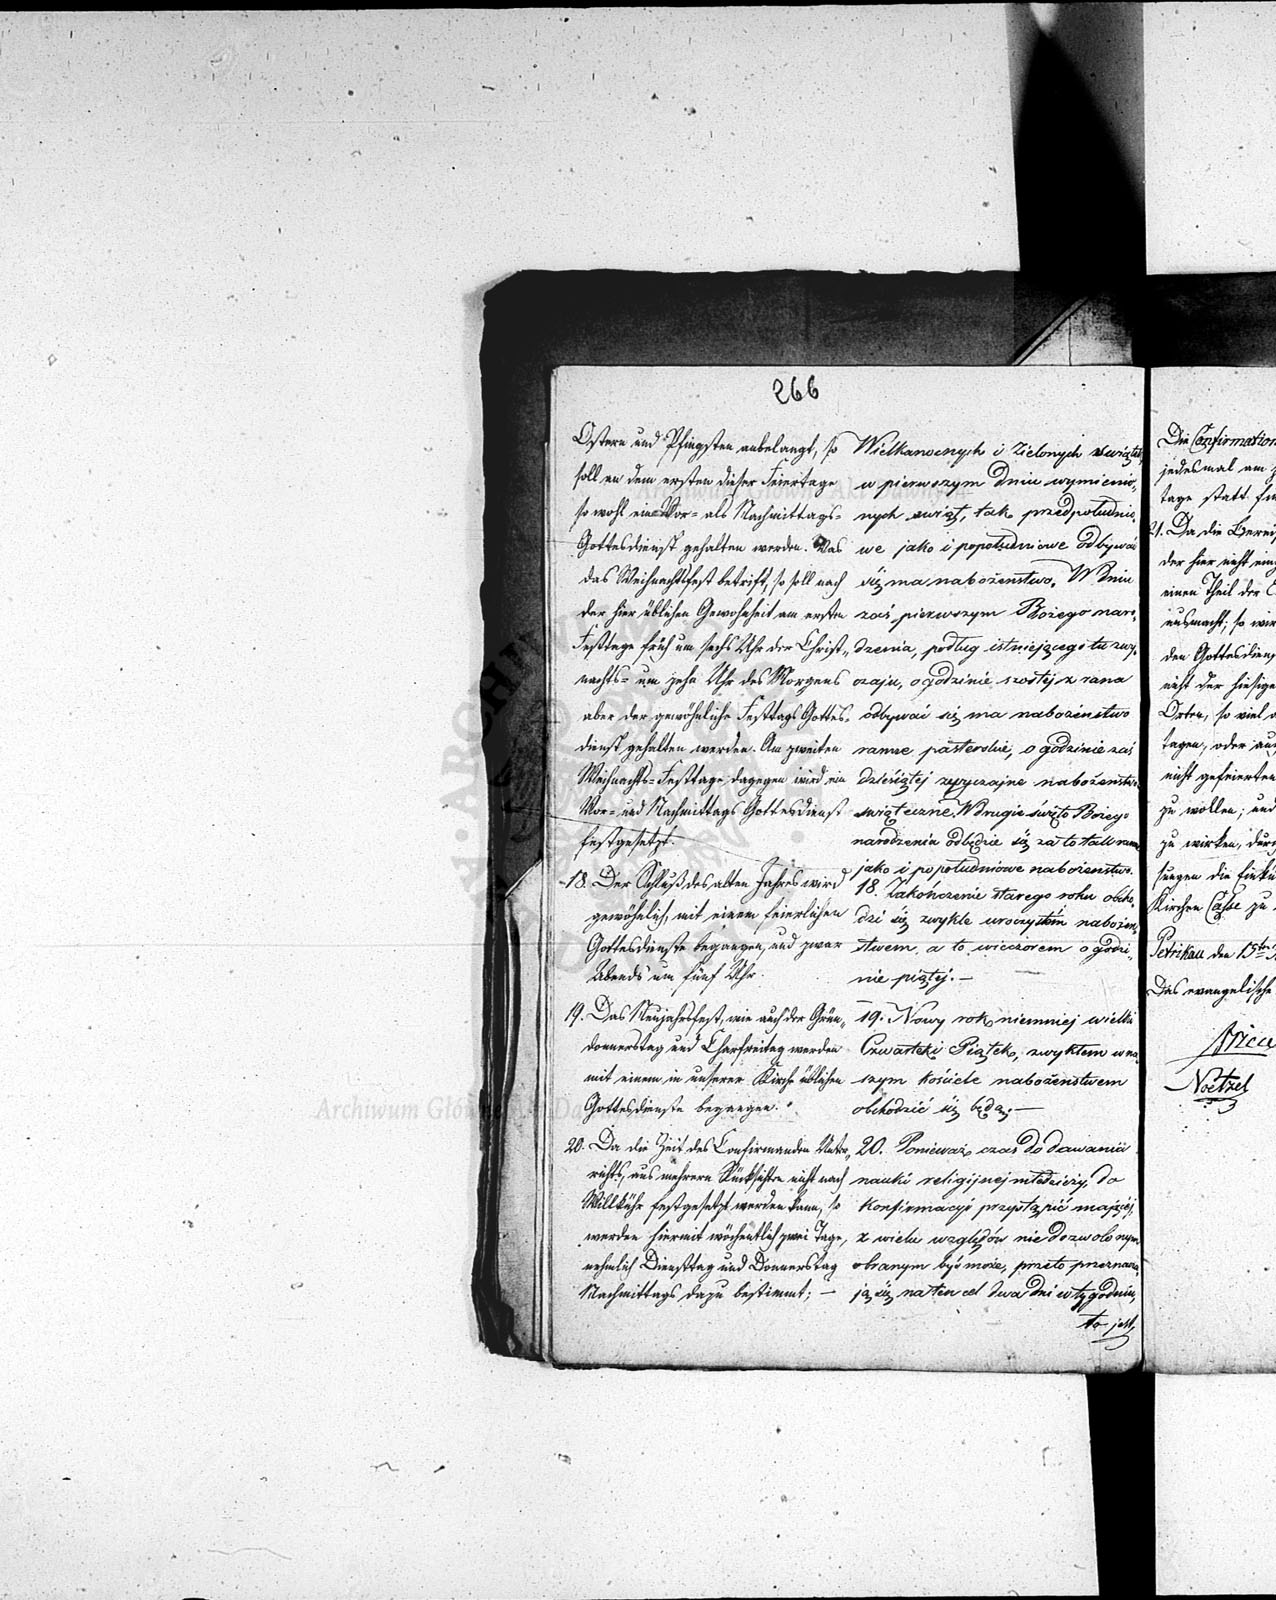 266
Ostern und Pfingsten anbelangt, so
soll an dem ersten dieser Feiertage
so wohl ein Vor- als Nachmittags-
Gottesdienst gehalten werden. Was
das Weihnachtsfest betrift, so soll nach
der hier üblichen Gewohnheit am ersten
Festtage früh um sechs Uhr der Christ-
nachts- um zehn Uhr des Morgens
aber der gewöhnliche Festtags Gottes-
dienst gehalten werden. Am zweiten
Weihnachts-Festtage dagegen wird ein
Vor- und Nachmittags Gottesdienst
festgesetzt.
18. Der Schluß des alten Jahres wird
gewöhnlich, mit einem feierlichen
Gottesdienste begangen, und zwar
Abends um fünf Uhr.
19. Das Neujahrsfest, wie auch der Grün-
donnerstag und Charfreitag werden
mit einem in unserer Kirche üblichen
Gottesdienste begangen.
20. Da die Zeit des Confirmanden Unter-
richts, aus mehrern Rücksichten nicht nach
Willkühr festgesetzt werden kann, so
werden hiermit wöchentlich zwei Tage,
nehmlich Diensttag und Donnerstag
Nachmittags dazu bestimmt; —
Wielkanocnych i Zielonych świątek,
w pierwszym Dniu wymienio-
nych świąt, tak przedpołudnio-
we jako i popołudniowe odbywać
się ma nabożeństwo. W Dniu
zaś pierwszym Bożego naro-
dzenia, podług istniejącego tu zwy-
czaju, o godzinie szóstej z rana
odbywać się ma nabożeństwo
ranne pasterskie, o godzinie zaś
dziesiątej zwyczajne nabożeństwo
świąteczne. W drugie święto Bożego
narodzenia odbędzie się za to tak ranne
jako i popołudniowe nabożeństwo.
18. Zakończenie starego roku obcho-
dzi się zwykle uroczystém nabożeń-
stwem, a to wieczorem o godzi-
nie piątej. —
19. Nowy rok, niemniej wielki
Czwartek i Piątek, zwykłem w na-
szym kościele nabożeństwem
obchodzić się będą. —
20. Ponieważ czas do dawania
nauki religijnej młodzieży, do
Konfirmacyi przystąpić mającéj,
z wielu względów nie dozwolonym
obranym być może, przeto przezna-
ją się na ten cel dwa dni w tygodniu,
to jest,
Die Confirmation
jedesmal am
tage statt
21. Da die
der hier nicht
einen Theil der
ausmacht; so
den Gottesdienst
nicht der hiesige
Orten, so viel
tagen, oder
nicht gefeierten
zu wollen; und
zu wirken,
sungen die
Kirchen Casse zu
Petrikau den 15ten
Das evangelische
Noetzel
Archiwum Główne Akt Dawnych